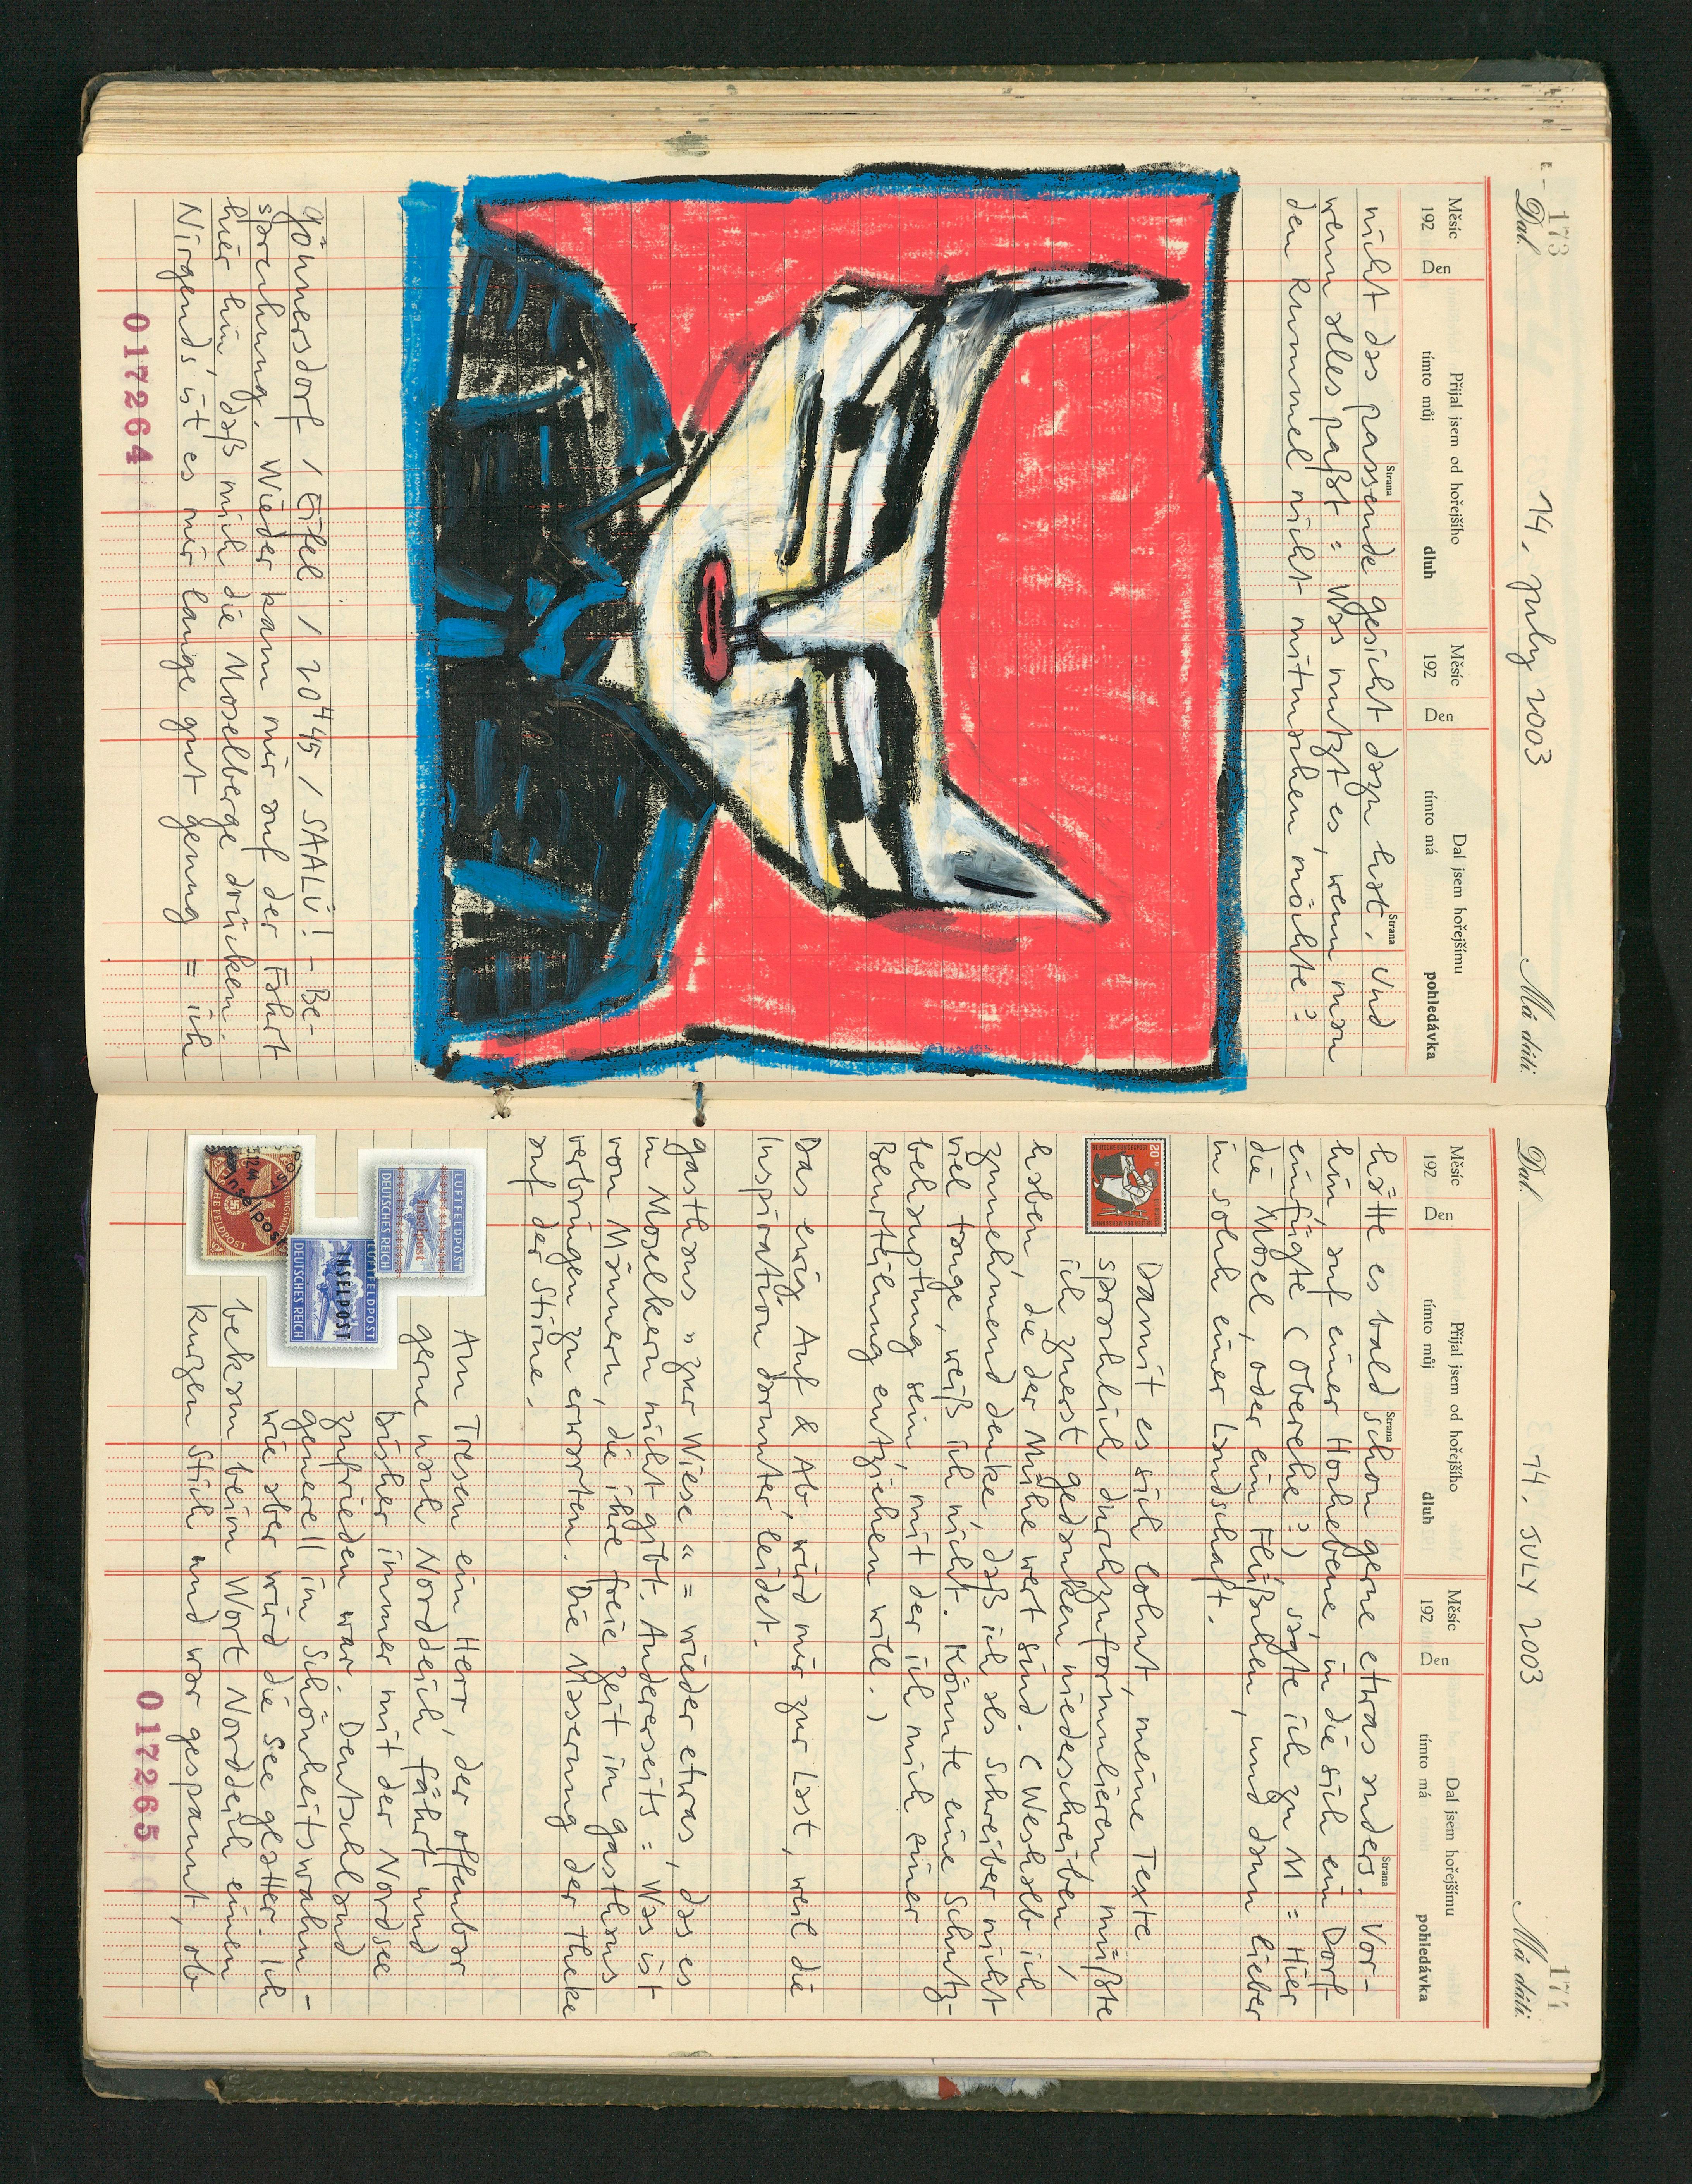 173
Dal.
14. July 2003
Má dáti.
Měsíc
192
Den
Přijal jsem od hořejšího
tímto můj
dluh
Strana
Měsíc
192
Den
Dal jsem hořejšímu
tímto má
pohledávka
Strana
nicht das passende Gesicht dazu hat. Und
wenn alles paßt = Was nutzt es, wenn man
den Rummel nicht mitmachen möchte?
Gönnersdorf / Eifel / 20⁴45 / SAALÜ! - Be-
sprechung. Wieder kam mir auf der Fahrt
hier hin, daß mich die Moselberge drücken.
Nirgends ist es mir lange gut genug = ich
017264
174
Dal.
14. JULY 2003
Má dáti.
Měsíc
192
Den
Přijal jsem od hořejšího
tímto můj
dluh
Strana
Měsíc
192
Den
Dal jsem hořejšímu
tímto má
pohledávka
Strana
hätte es bald schon gerne etwas anders. Vor-
hin, auf einer Hochebene, in die sich ein Dorf
einfügte (Oberehe?) sagte ich zu M = Hier
die Mosel, oder ein Flüßchen, und dann lieber
in solch einer Landschaft.
20
Damit es sich lohnt, meine Texte
sprachlich durchzuformulieren, müßte
ich zuerst Gedanken niederschreiben,
haben, die der Mühe wert sind. (Weshalb ich
zunehmend denke, daß ich als Schreiber nicht
viel tauge, weiß ich nicht. Könnte eine Schutz-
behauptung sein, mit der ich mich einer
Beurteilung entziehen will.)
Das ewig Auf & Ab, wird mir zur Last, weil die
Inspiration darunter leidet.
Gasthaus „zur Wiese“ = wieder etwas, das es
in Moselkern nicht gibt. Andererseits = Was ist
von Männern, die ihre freie Zeit im Gasthaus
verbringen zu erwarten. Die Maserung der Theke
auf der Stirne.
Am Tresen ein Herr, der offenbar
gerne nach Norddeich fährt und
bisher immer mit der Nordsee
zufrieden war. Deutschland
generell im Schönheitswahn -
wie aber wird die See glatter. Ich
bekam beim Wort Norddeich einen
kurzen Stich und war gespannt, ob
LUFTFELDPOST
Inselpost
DEUTSCHES REICH
LUFTFELDPOST
INSELPOST
DEUTSCHES REICH
Inselpost
FELDPOST
017265